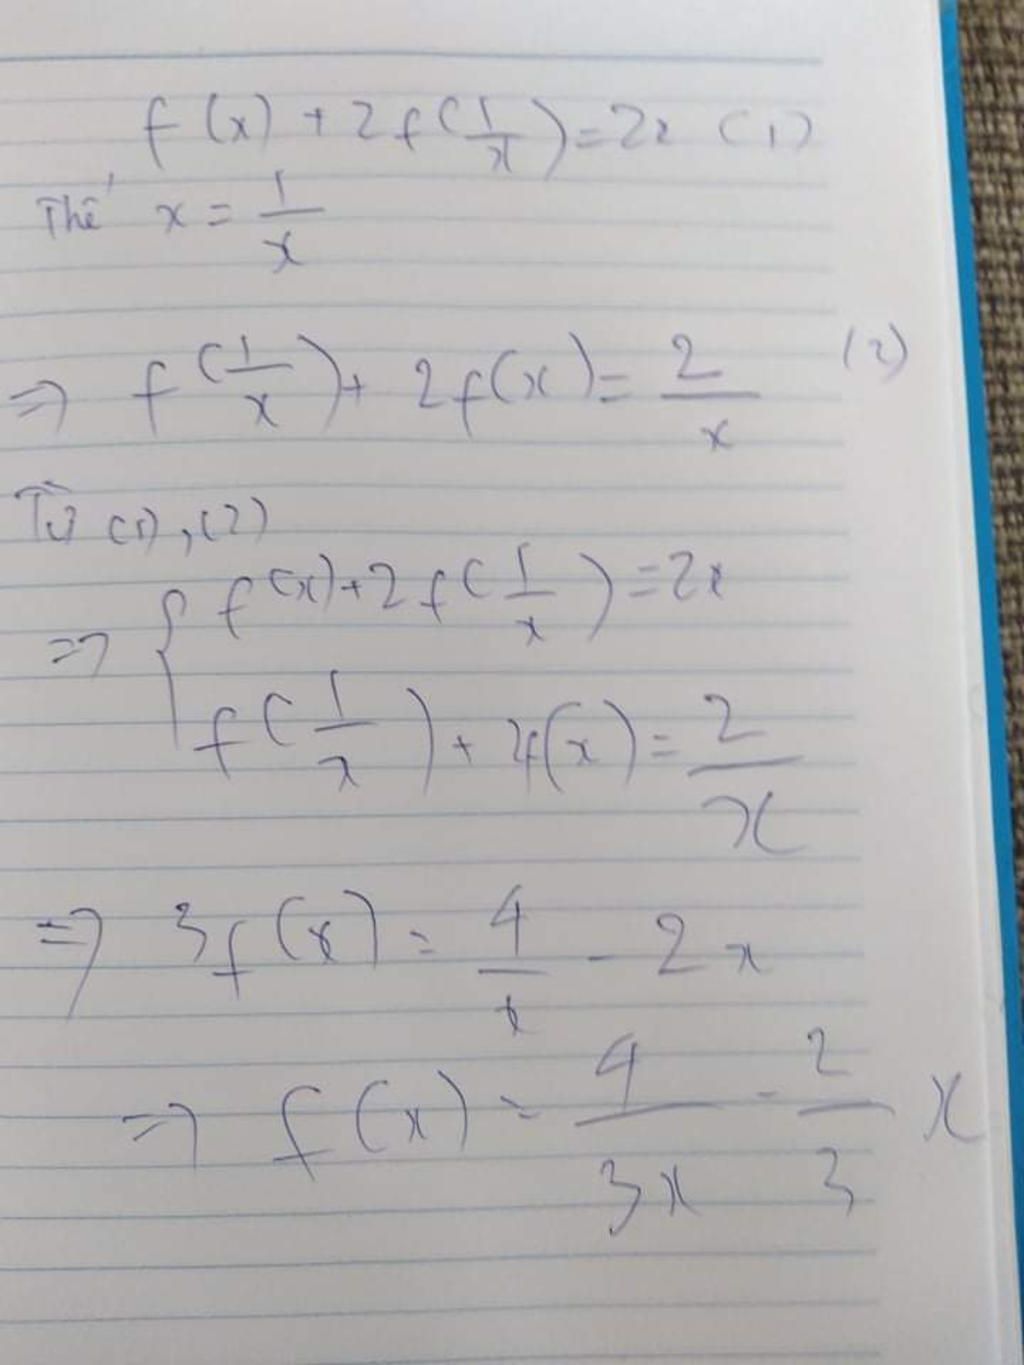 f(x) + 2f(1/x) = 2x (1)
Thế x = 1/x
⇒ f(1/x) + 2f(x) = 2/x (2)
Từ (1), (2)
⇒ { f(x) + 2f(1/x) = 2x
f(1/x) + 2f(x) = 2/x
⇒ 3f(x) = 4/x - 2x
⇒ f(x) = 4/3x - 2/3 x